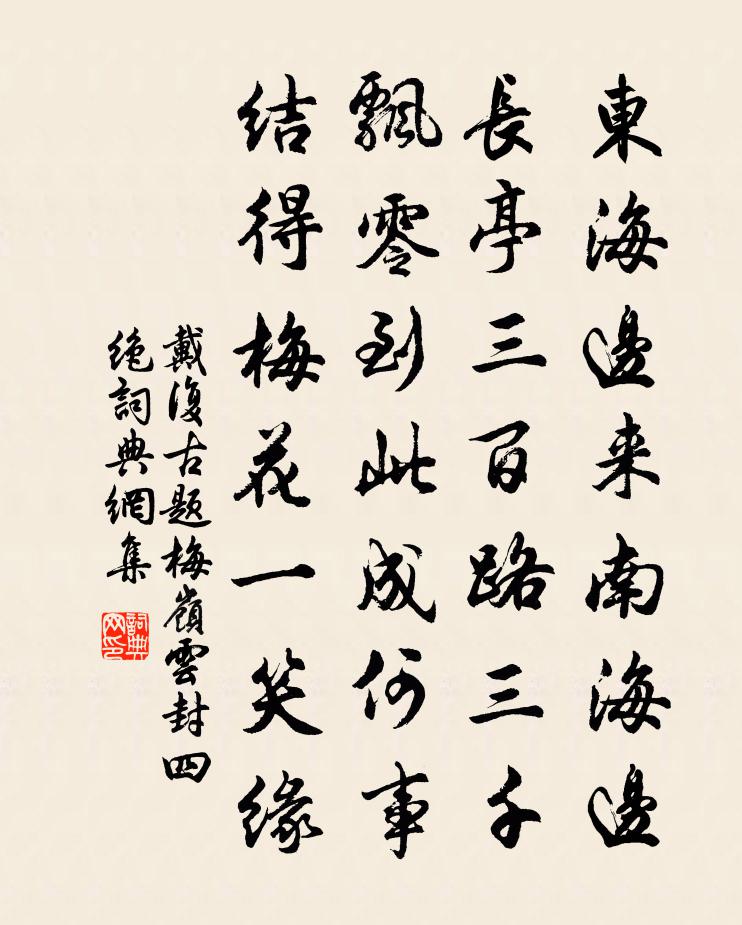 東海邊来南海邊
長亭三百路三千
飄零到此成何事
结得梅花一笑缘
戴復古题梅嶺雲封四
绝詞典網集
詞典
网印